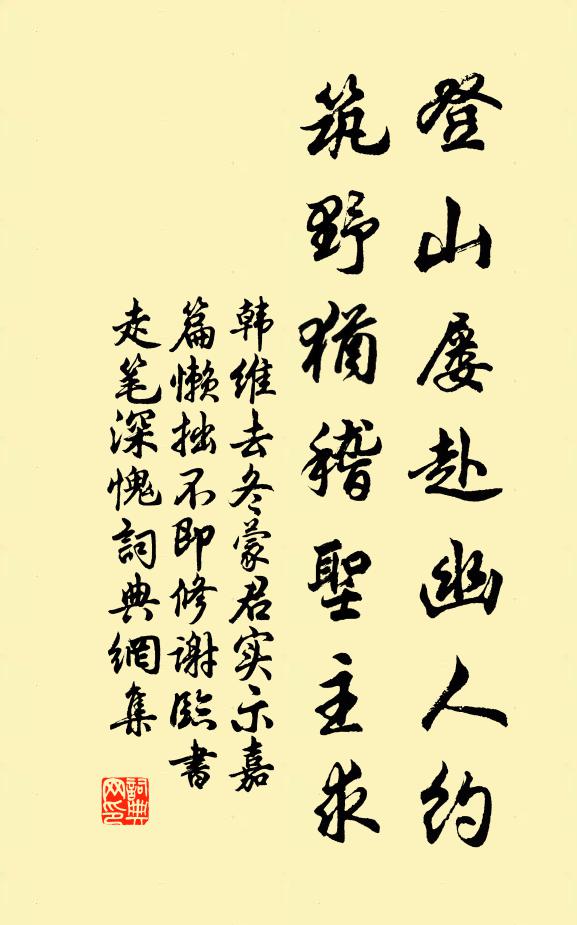 登山屡赴幽人约
筑野猶稽聖主求
韩維去冬蒙君实示嘉
篇懒拙不即修谢臨書
走笔深愧詞典網集
詞典
网印